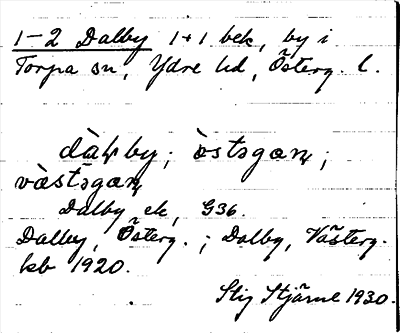 1-2 Dalby 1+1 bek, by i
Torpa sn, Ydre hd, Österg. l.
dàḷby; ö̀stgaṇ;
vä̀stgaṇ
Dalby ek, G36.
Dalby, Österg.; Dalby, Västerg.
kb 1920.
Stig Stjärne 1930.